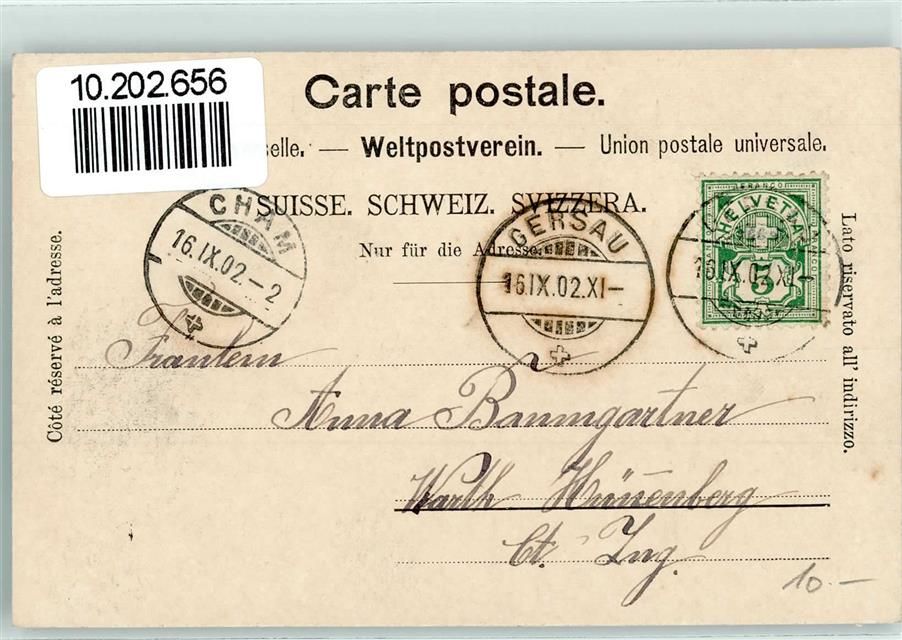 10.202.656
Carte postale.
selle. — Weltpostverein. — Union postale universale.
SUISSE. SCHWEIZ. SVIZZERA.
Nur für die Adresse.
CHAM
16.IX.02.–2
GERSAU
16.IX.02.XI–
16.IX.02.XI–
FRANCO
HELVETIA
FRANCO
5
Côté réservé à l'adresse.
Lato riservato all' indirizzo.
Fräulein
Anna Baumgartner
Warth Hünenberg
Ct. Zug.
10.–